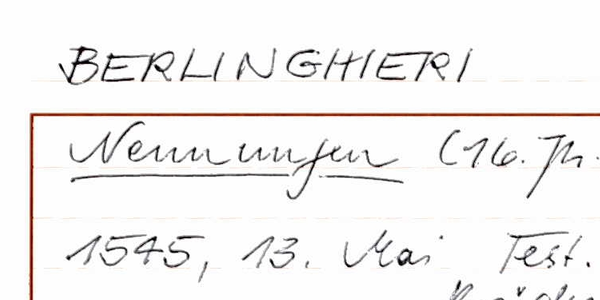 BERLINGHIERI
Nennungen (16. Jh.
1545, 13. Mai Test.